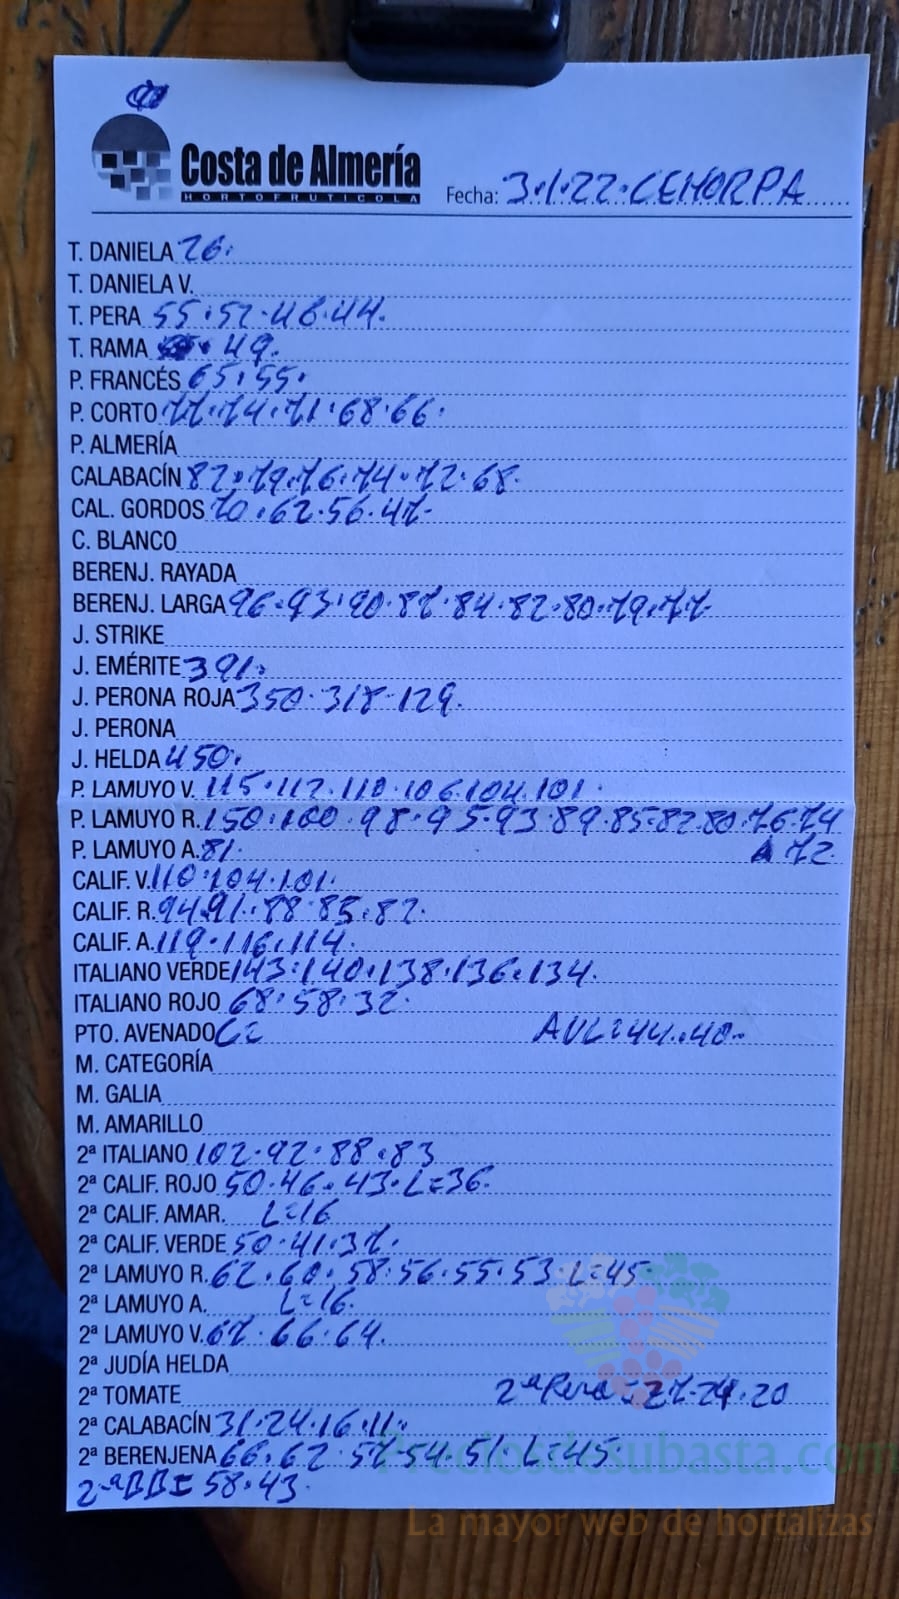 Costa de Almería
HORTOFRUTICOLA
Fecha: 3.1.22.CEHORPA
T. DANIELA 26.
T. DANIELA V.
T. PERA 55.52.46.44.
T. RAMA 49.
P. FRANCÉS 65.55.
P. CORTO 77.74.71.68.66.
P. ALMERÍA
CALABACÍN 82.79.76.74.72.68.
CAL. GORDOS 70.62.56.47.
C. BLANCO
BERENJ. RAYADA
BERENJ. LARGA 96.93.90.87.84.82.80.79.77.
J. STRIKE
J. EMÉRITE 391.
J. PERONA ROJA 350.318.129.
J. PERONA
J. HELDA 450.
P. LAMUYO V. 115.112.110.106.104.101.
P. LAMUYO R. 150.100.98.95.93.89.85.82.80.76.74
P. LAMUYO A. 81. A 72.
CALIF. V. 110.104.101.
CALIF. R. 94.91.88.85.82.
CALIF. A. 119.116.114.
ITALIANO VERDE 143.140.138.136.134.
ITALIANO ROJO 68.58.32.
PTO. AVENADO AVL=44.40.
M. CATEGORÍA
M. GALIA
M. AMARILLO
2ª ITALIANO 102.92.88.83
2ª CALIF. ROJO 50.46.43.L=36.
2ª CALIF. AMAR. L=16
2ª CALIF. VERDE 50.41.37.
2ª LAMUYO R. 62.60.58.56.55.53 L=45.
2ª LAMUYO A. L=16.
2ª LAMUYO V. 67.66.64.
2ª JUDÍA HELDA
2ª TOMATE 2ª Pera=27.24.20
2ª CALABACÍN 31.24.16.11.
2ª BERENJENA 66.62.57.54.51.L=45.
2ªBB=58.43.
Preciosdesubasta.com
La mayor web de hortalizas